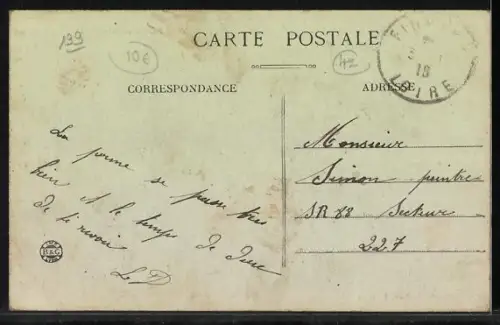 139
10€
42
CARTE POSTALE
CORRESPONDANCE
ADRESSE
LOIRE
18
La se passe tres
bien et le temps de
de te revoir
L D
B&G
Monsieur
Simon peintre
SR 88 Secteur
227